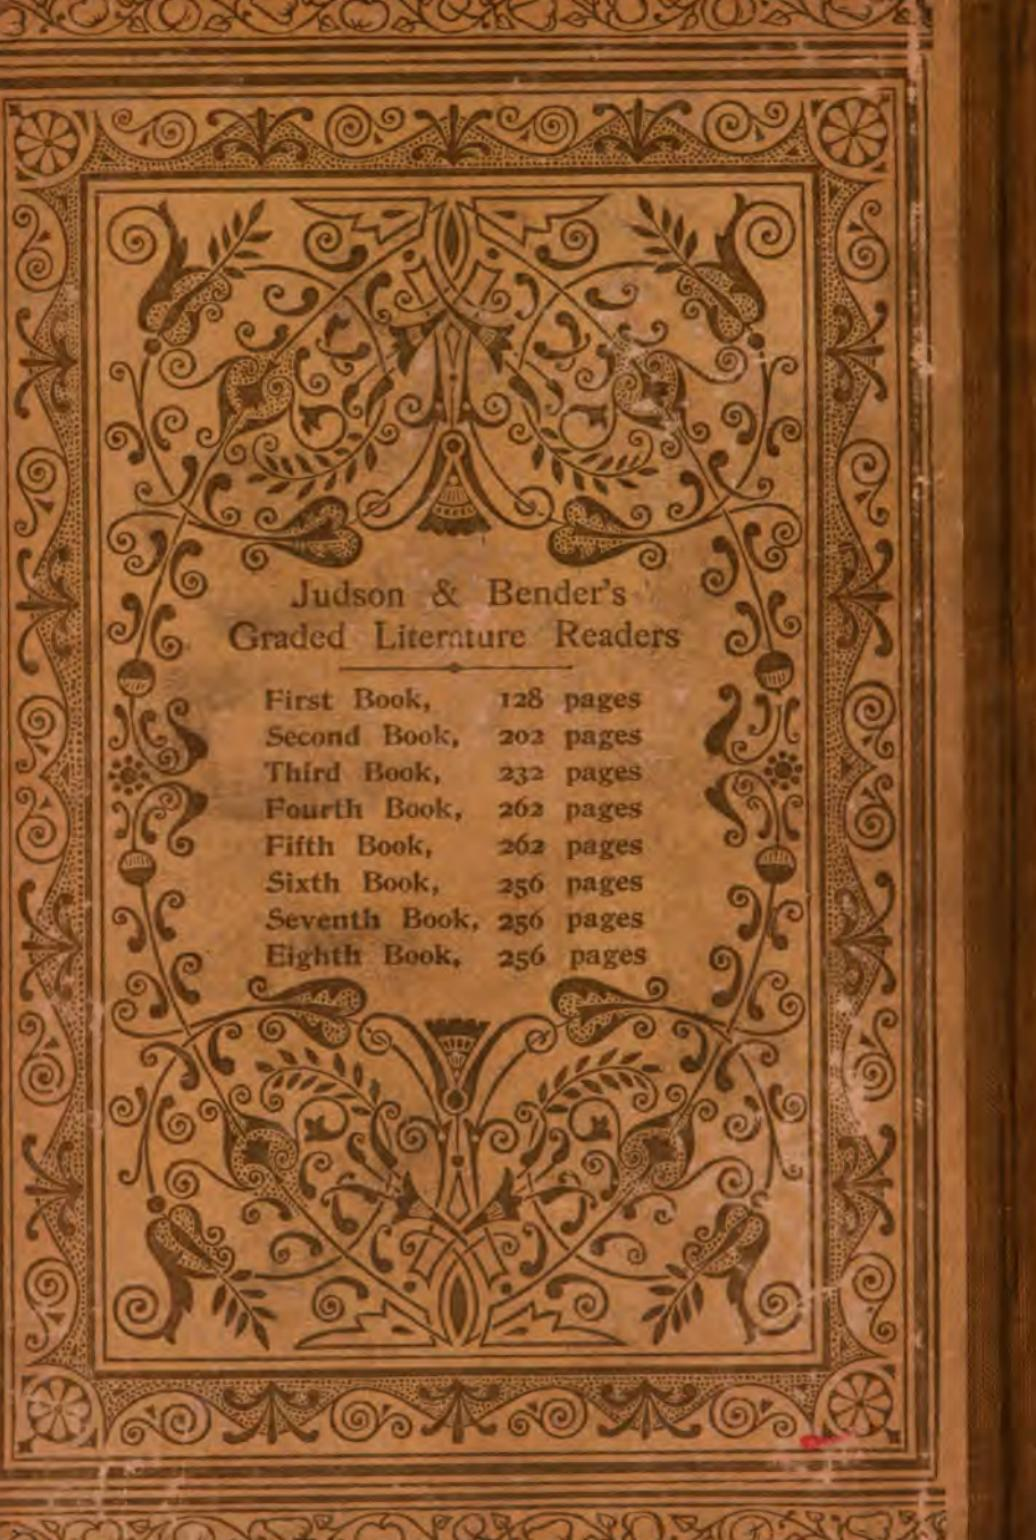 Judson & Bender's
Graded Literature Readers
First Book, 128 pages
Second Book, 202 pages
Third Book, 232 pages
Fourth Book, 262 pages
Fifth Book, 262 pages
Sixth Book, 256 pages
Seventh Book, 256 pages
Eighth Book, 256 pages